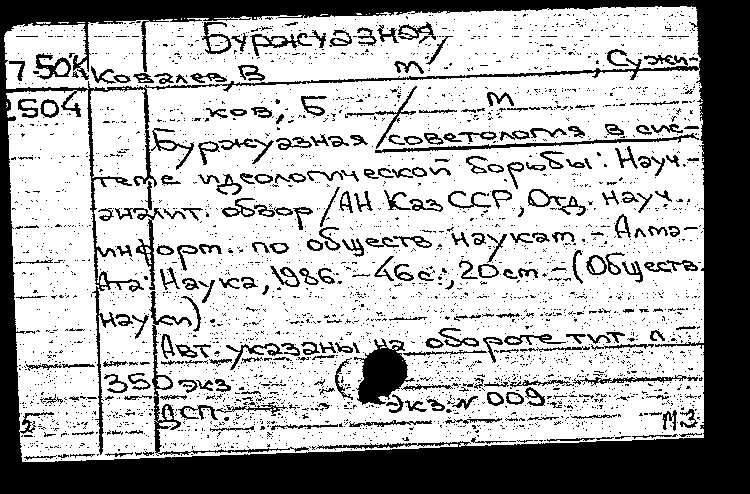 Буржуазная
7.50К Ковалев, В m ; Сужи-
2504 ков; Б m
Буржуазная /советология в сис-
теме идеологической борьбы: Науч.-
аналит. обзор /АН КазССР, Отд. науч.
информ. по обществ. наукам. - Алма-
Ата: Наука, 1986. - 46с.; 20 cm. - (Обществ.
науки).
Авт. указаны на обороте тит. л.
350 экз.
ДСП. Экз. N 009
М.З